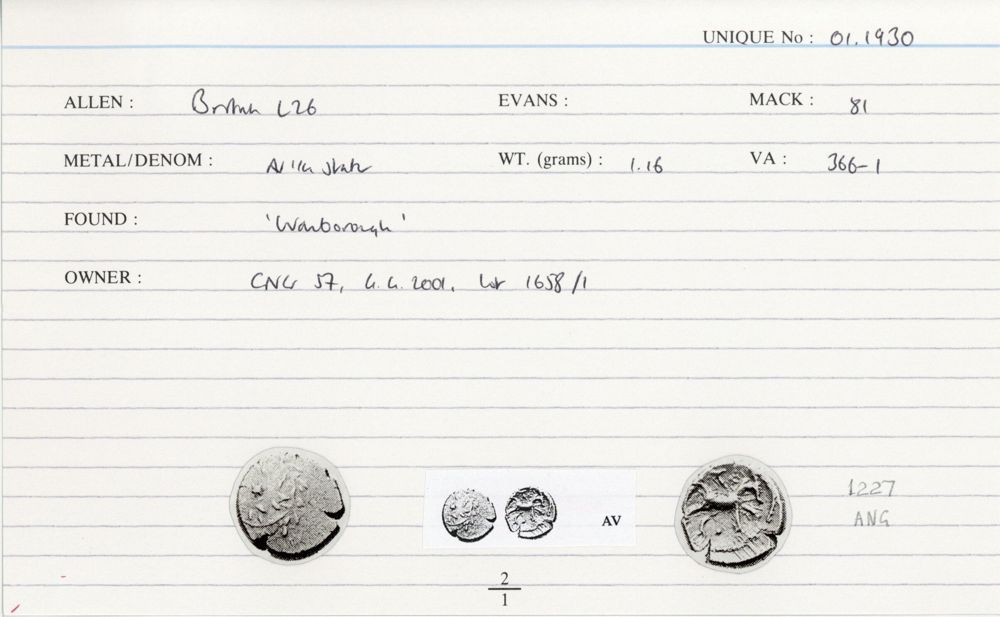 UNIQUE No : 01.1930
ALLEN : British L26 EVANS : MACK : 81
METAL/DENOM : AV 1/4 stater WT. (grams) : 1.16 VA : 366-1
FOUND : 'Warborough'
OWNER : CNG 57, 4.4.2001, lot 1658/1
1227
ANG
AV
2
1